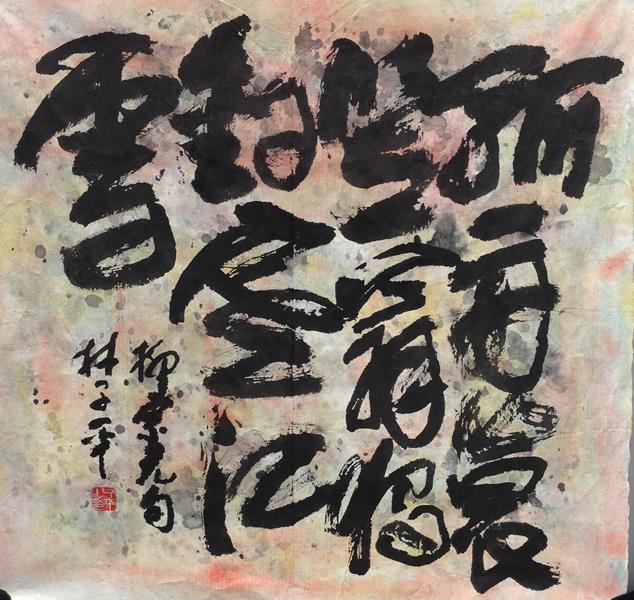 孤舟蓑
笠翁獨
釣寒江
雪
柳宗元句
林子平